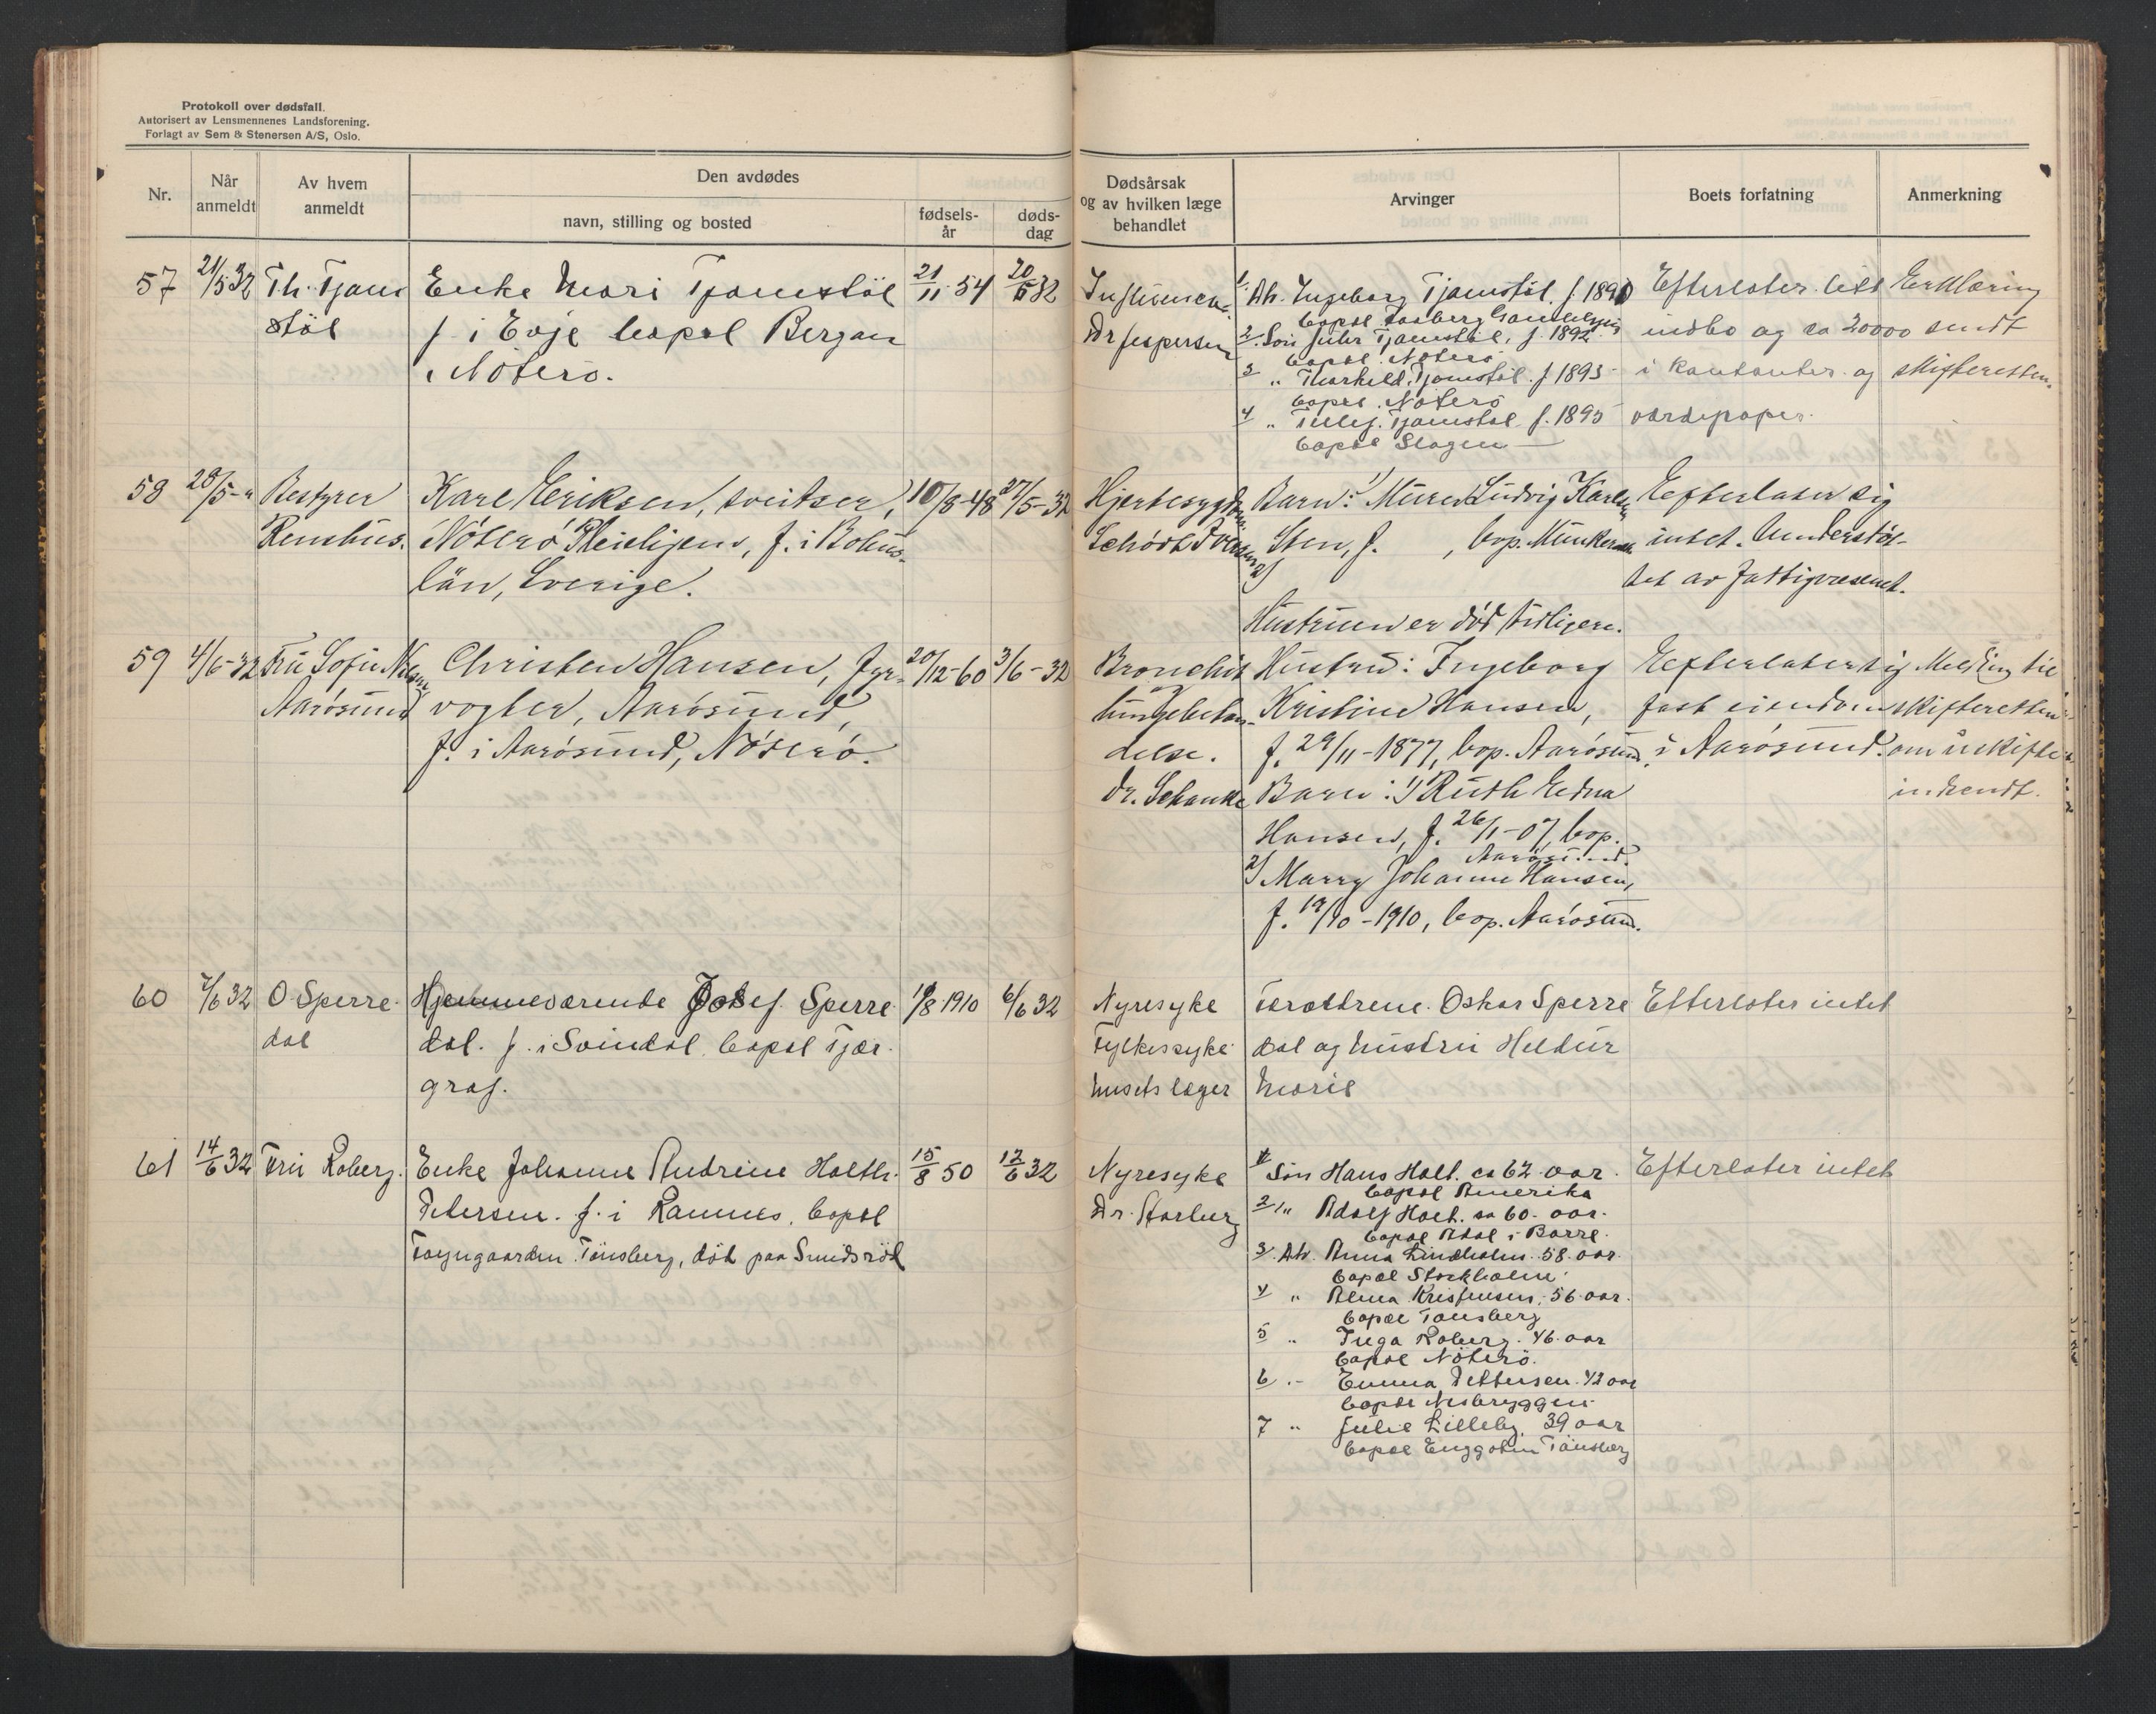 Protokoll over dødsfall.
Autorisert av Lensmennenes Landsforening.
Forlagt av Sem & Stenersen A/S, Oslo.
Nr.
Når anmeldt
Av hvem anmeldt
Den avdødes
navn, stilling og bosted
fødsels-år
døds-dag
Dødsårsak og av hvilken læge behandlet
Arvinger
Boets forfatning
Anmerkning
57 21/5 32 Th. Tjam
støl
Enke Mari Tjamstöl
f. i Evje bopæl Bergan
Nöterö.
21/11 54 20/5 32
Influenca
Dr Jespersen
1. Dtr. Ingeborg Tjamstöl. f. 1890
bopæl
2. Sön Tjamstöl, f. 1892
bopæl Nöterö
3 " Thorhild. Tjomstöl. f 1893
bopæl. Nöterö
4 " Tellef. Tjamstöl f. 1895
bopæl Slagen
Efterlater litt
indbo og ca 20000
i kontanter og
værdipapir.
Erklæring
sendt
skifteretten.
58 28/5 - " Bestyrer
Renshus.
Karl Eriksen, sveitser,
Nöterö Pleiehjem, f. i Bohus-
län, Sverige.
10/8-48 27/5-32
Hjertesygdom
Barn: 1/ Murer Ludvig Karlsen
Sten, f. , bop. Munkerek
2/
Hustruen er död tidligere.
Eefterlater sig
intet. Understöt-
tet av fattigvesenet.
59 4/6-32 Fru Sofie
Aarösund
Christen Hansen, fyr-
vogter, Aarösund,
f. i Aarösund, Nöterö.
20/12-60 3/6-32
Bronchit
og
lungebetæn-
delse.
Dr. Schanke
Hustru: Ingeborg
Kristine Hansen,
f. 29/11-1877, bop. Aarösund.
Barn: 1/ Ruth Edna
Hansen, f. 26/1-07, bop.
Aarösund.
2/ Marry Johanne Hansen,
f. 19/10-1910, bop. Aarösund.
Eefterlater sig
fast eiendom
i Aarösund.
Melding til
skifteretten
om uskifte
indsendt.
60 7/6 32 O. Sperre-
dal
Hjemmeværende Josef Sperre-
dal. f. i Svindal. bopæl Tjær-
graf.
19/8 1910 6/6 32
Nyresyke
Fylkessyke-
husets læger
Forældrene. Oskar Sperre
dal og hustru Heldur
Marie
Efterlater intet
61 14/6 32 Fru Roberg.
Enke Johanne Andrine Holth-
Petersen. f. i Ramnes. bopæl
Tönsberg, död paa Smidsröd
15/8 50 12/6 32
Nyresyke
Dr.
1/ Sön Hans Holt. ca 62 aar.
bopæl Amerika
2/ " Adolf Holt. ca 60. aar.
bopæl Adal i Borre.
3/ Dtr. Anna Lindholm. 58. aar.
bopæl Stockholm.
4 " Alma Kristensen. 56 aar.
bopæl Tönsberg
5 " Inga Roberg. 46. aar
bopæl Nöterö.
6 " Emma Pettersen. 42 aar
bopæl Nesbryggen
7 " Julie Lilleby. 39 aar
bopæl Tönsberg
Efterlater intet